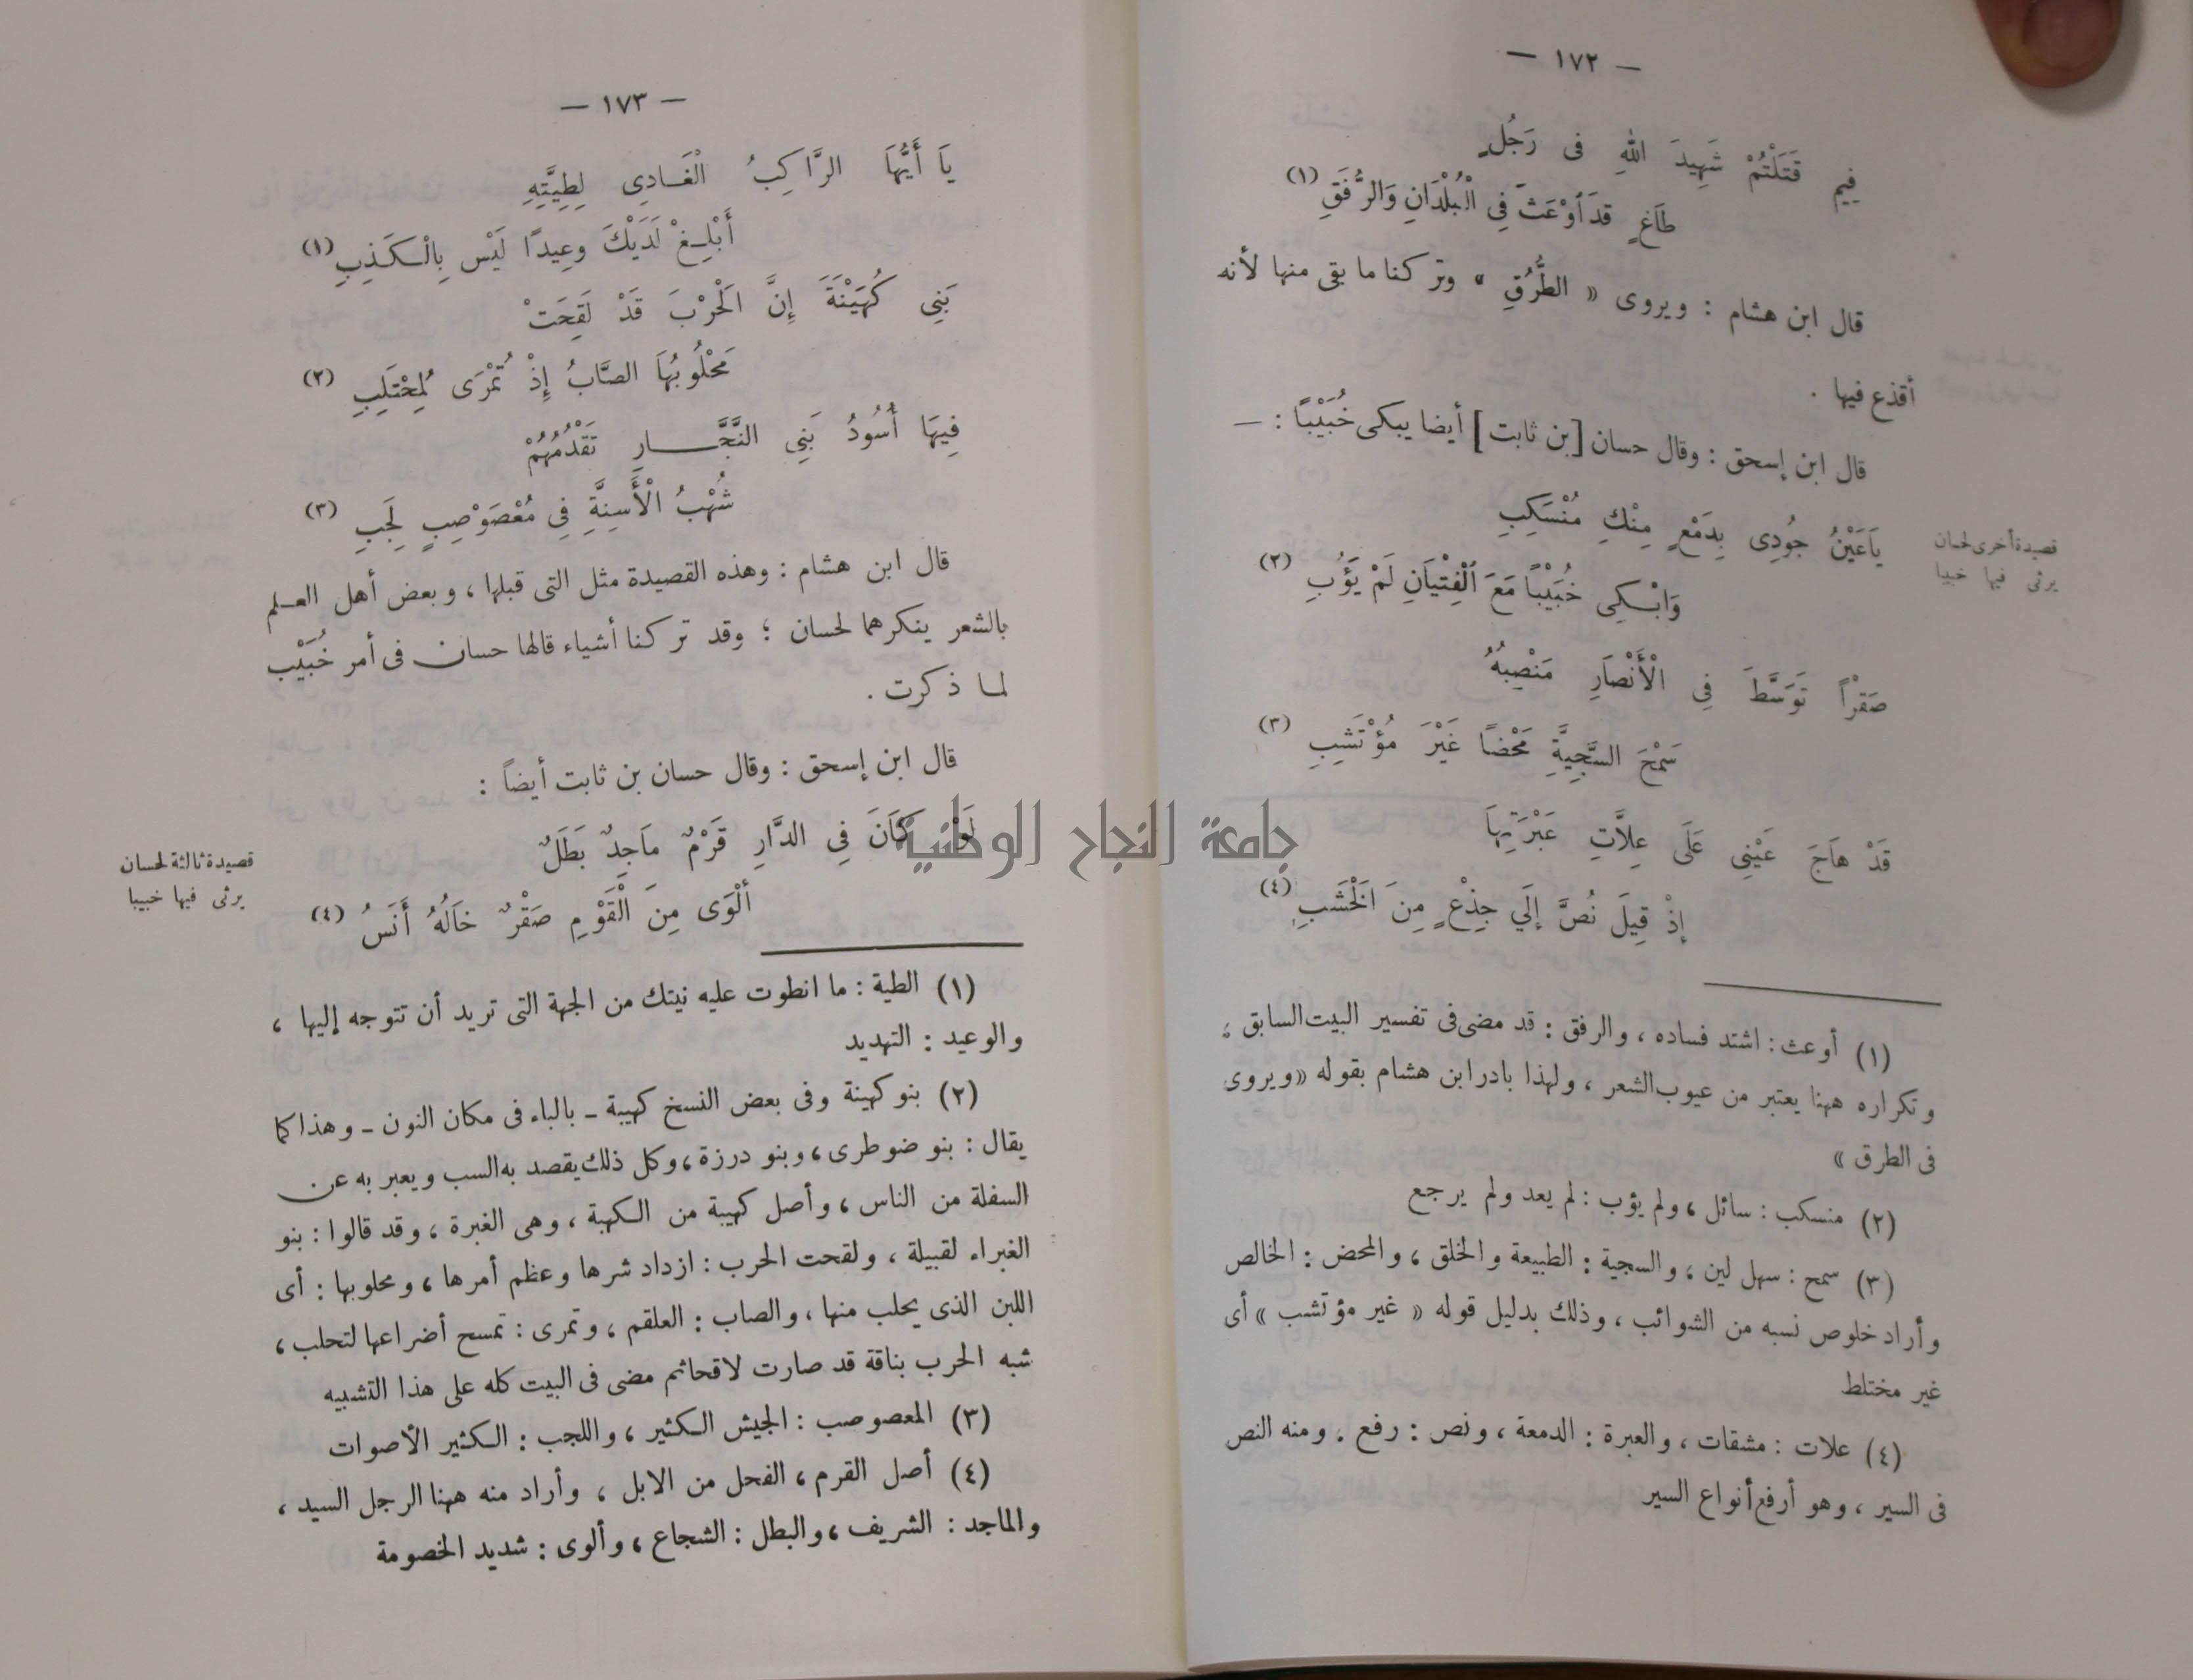 — ١٧٢ —
فِيمِ قَتَلْتُمْ شَهِيدَ اللهِ فى رَجُلٍ
طَاغٍ قدَ أوْعَثَ فِي الْبُلْدَانِ وَالرُّفَقِ (١)
قال ابن هشام : ويروى « الطُّرُقِ » وتركنا ما بقى منها لأنه
أقذع فيها .
قال ابن إسحق : وقال حسان [بن ثابت] أيضا يبكى خُبَيْبًا : —
يَاعَيْنُ جُودِى بِدَمْعٍ مِنْكِ مُنْسَكِبِ
وَابْكِى خُبَيْبًا مَعَ الْفِتْيَانِ لَمْ يَؤُبِ (٢)
قصيدة أخرى لحسان
يرثى فيها خبيبا
صَقْرًا تَوَسَّطَ فِي الْأَنْصَارِ مَنْصِبُهُ
سَمْحَ السَّجِيَّةِ مَحْضًا غَيْرَ مُؤْتَشِبِ (٣)
قَدْ هَاجَ عَيْنِى عَلَى عِلاَّتِ عَبْرَتِهَا
إذْ قِيلَ نُصَّ إلَي جِذْعٍ مِنَ الْخَشَبِ (٤)
(١) أوعث : اشتد فساده ، والرفق : قد مضى فى تفسير البيت السابق ،
وتكراره ههنا يعتبر من عيوب الشعر ، ولهذا بادر ابن هشام بقوله « ويروى
فى الطرق »
(٢) منسكب : سائل ، ولم يؤب : لم يعد ولم يرجع
(٣) سمح : سهل لين ، والسجية : الطبيعة والخلق ، والمحض : الخالص
وأراد خلوص نسبه من الشوائب ، وذلك بدليل قوله « غير مؤتشب » أى
غير مختلط
(٤) علات : مشقات ، والعبرة : الدمعة ، ونص : رفع . ومنه النص
فى السير ، وهو أرفع أنواع السير
— ١٧٣ —
يَا أَيُّهَا الرَّاكِبُ الْغَادِى لِطِيَّتِهِ
أَبْلِغْ لَدَيْكَ وعِيدًا لَيْس بِالْكَذِبِ (١)
بَنِي كُهَيْنَةَ إِنَّ الْحَرْبَ قَدْ لَقِحَتْ
مَحْلُوبُهَا الصَّابُ إِذْ تُمْرَى لِمُحْتَلِبِ (٢)
فِيهَا أُسُودُ بَنِي النَّجَّارِ تَقْدُمُهُمْ
شُهْبُ الْأَسِنَّةِ فِي مُعْصَوْصِبٍ لَجِبِ (٣)
قال ابن هشام : وهذه القصيدة مثل التى قبلها ، وبعض أهل العلم
بالشعر ينكرهما لحسان ؛ وقد تركنا أشياء قالها حسان فى أمر خُبَيْب
لما ذكرت .
قال ابن إسحق : وقال حسان بن ثابت أيضاً :
لَوْ كَانَ فِي الدَّارِ قَرْمٌ مَاجِدٌ بَطَلٌ
ألْوَى مِنَ الْقَوْمِ صَقْرٌ خَالُهُ أَنَسُ (٤)
قصيدة ثالثة لحسان
يرثى فيها خبيبا
(١) الطية : ما انطوت عليه نيتك من الجهة التى تريد أن تتوجه إليها ،
والوعيد : التهديد
(٢) بنو كهينة وفى بعض النسخ كهيبة ـ بالباء فى مكان النون ـ وهذا كما
يقال : بنو ضوطرى ، وبنو درزة ، وكل ذلك يقصد به السب ويعبر به عن
السفلة من الناس ، وأصل كهيبة من الكهبة ، وهى الغبرة ، وقد قالوا : بنو
الغبراء لقبيلة ، ولقحت الحرب : ازداد شرها وعظم أمرها ، ومحلوبها : أى
اللبن الذى يحلب منها ، والصاب : العلقم ، وتمرى : تمسح أضراعها لتحلب ،
شبه الحرب بناقة قد صارت لاقحا ثم مضى فى البيت كله على هذا التشبيه
(٣) المعصوصب : الجيش الكثير ، واللجب : الكثير الأصوات
(٤) أصل القرم ، الفحل من الابل ، وأراد منه ههنا الرجل السيد ،
والماجد : الشريف ، والبطل : الشجاع ، وألوى : شديد الخصومة
جامعة النجاح الوطنية